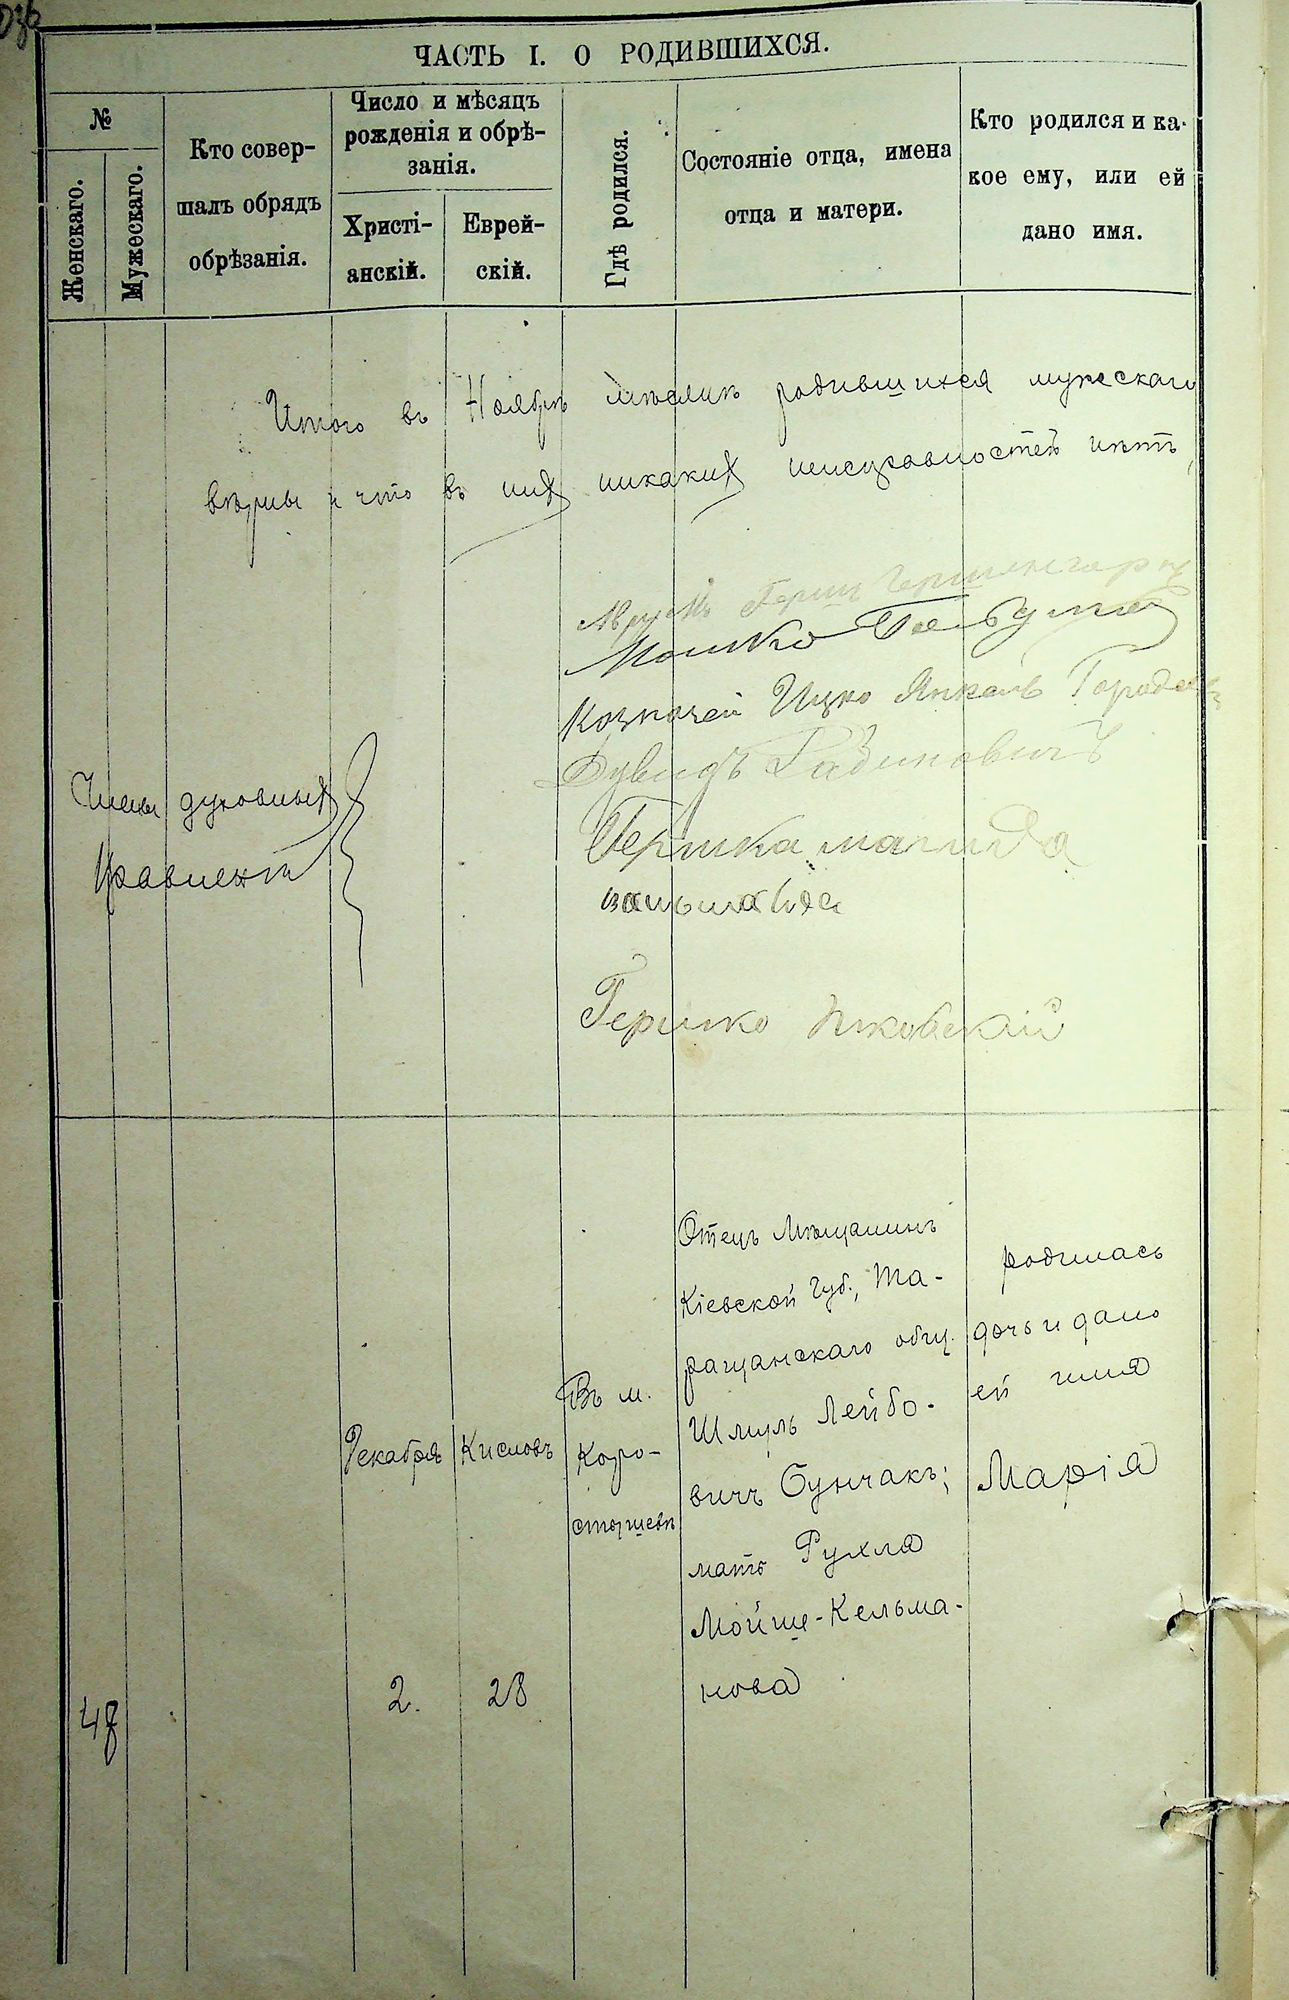 ЧАСТЬ I. О РОДИВШИХСЯ.
№
Женскаго.
Мужескаго.
Кто совер-
шалъ обрядъ
обрѣзанія.
Число и мѣсяцъ
рожденія и обрѣ-
занія.
Христі-
анскій.
Еврей-
скій.
Гдѣ родился.
Состояніе отца, имена
отца и матери.
Кто родился и ка-
кое ему, или ей
дано имя.
Итого въ Ноябрѣ мѣсяцѣ родившихся мужескаго
вѣрны и что въ них никаких неисправностей нѣтъ,
Герш
Мошко
Козначей Ицко Янкель
Дувидъ Рабиновичъ
Члены духовных
Правленій
Гершко
48
Декабря
2.
Кисловъ
28
Въ м.
Коро-
стышевѣ
Отецъ Мѣщанинъ
Кіевской Губ., Та-
ращанскаго общ.
Шмуль Лейбо-
вичъ Сунчакъ;
мать Рухля
Мойше-Кельма-
нова
родилась
дочь и дано
ей имя
Марія